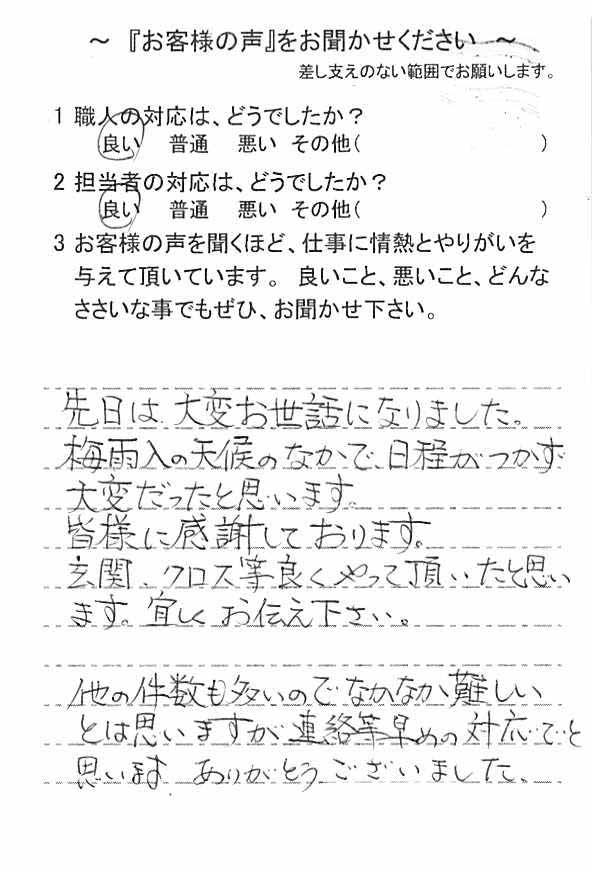 ～ 『お客様の声』をお聞かせください ～
差し支えのない範囲でお願いします。
1 職人の対応は、どうでしたか？
良い 普通 悪い その他( )
2 担当者の対応は、どうでしたか？
良い 普通 悪い その他( )
3 お客様の声を聞くほど、仕事に情熱とやりがいを
与えて頂いています。 良いこと、悪いこと、どんな
ささいな事でもぜひ、お聞かせ下さい。
先日は、大変お世話になりました。
梅雨入の天候のなかで、日程がつかず
大変だったと思います。
皆様に感謝しております。
玄関、クロス等良くやって頂いたと思い
ます。宜しくお伝え下さい。
他の件数も多いのでなかなか難しい
とは思いますが連絡等早めの対応でと
思います ありがとうございました。